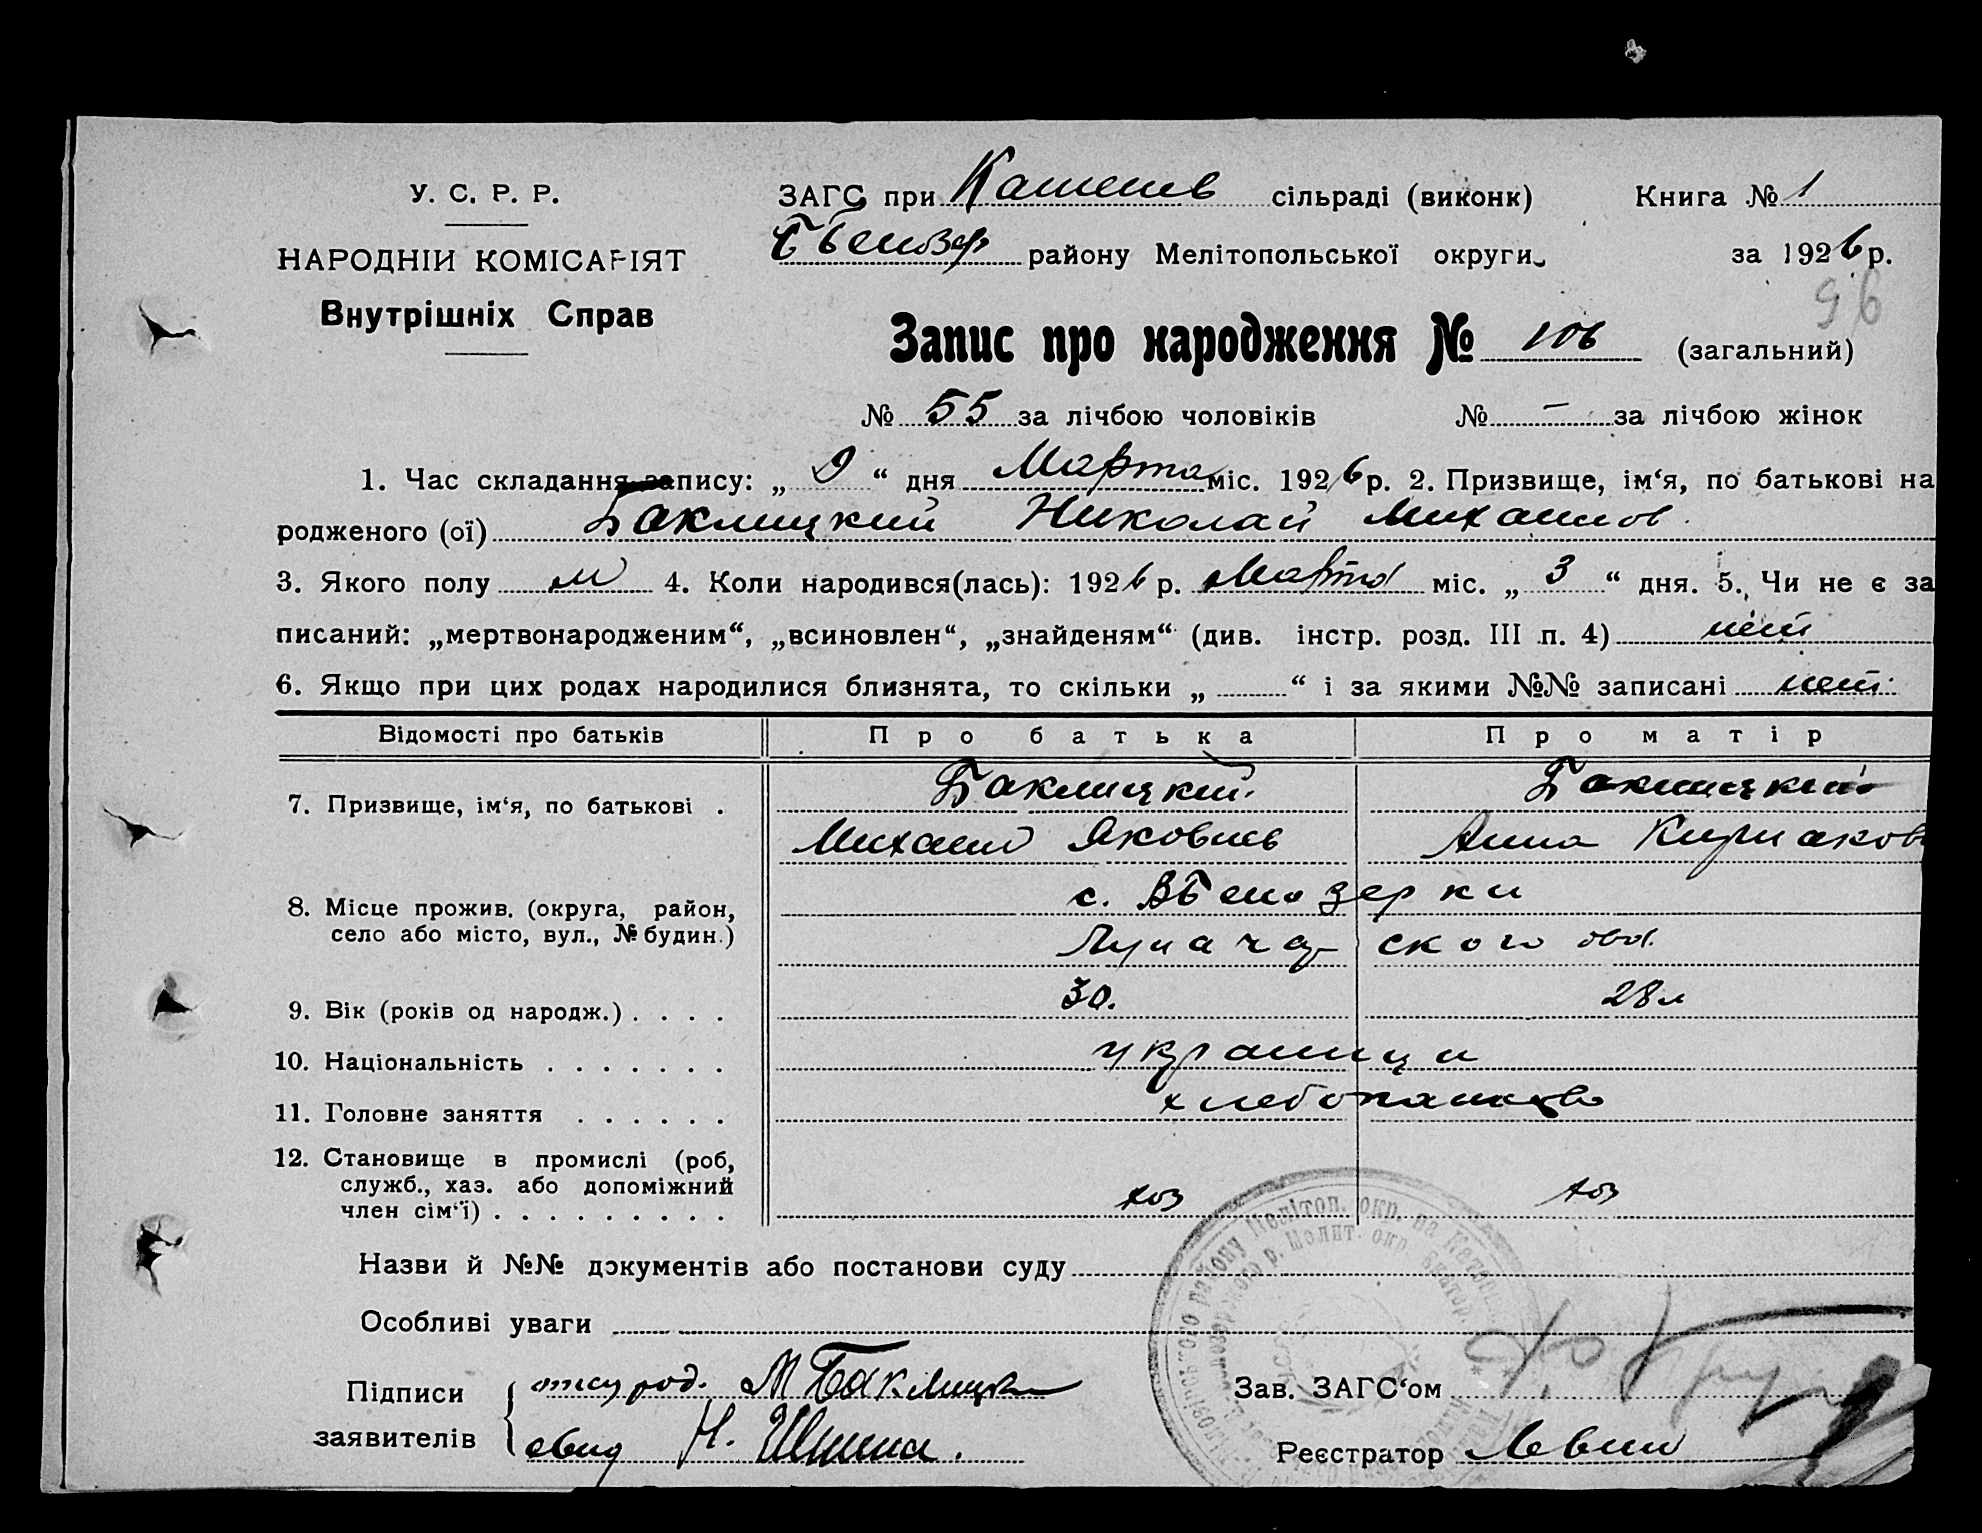 У. С. Р. Р.
НАРОДНІИ КОМІСАРІЯТ
Внутрішніх Справ
ЗАГС при Каменев сільраді (виконк) Книга № 1
району Мелітопольської округи за 1926 р.
96
Запис про народження № 106 (загальний)
№ 55 за лічбою чоловіків № – за лічбою жінок
1. Час складання запису: „ 9 “ дня Марта міс. 1926 р. 2. Призвище, ім‘я, по батькові на
родженого (ої) Баклицкий Николай Михаилов
3. Якого полу м 4. Коли народився(лась): 1926 р. Марта міс. „ 3 “ дня. 5. Чи не є за
писаний: „мертвонародженим“, „всиновлен“, „знайденям“ (див. інстр. розд. III п. 4) нет
6. Якщо при цих родах народилися близнята, то скільки „ “ і за якими №№ записані нет
Відомості про батьків Про батька Про матір
7. Призвище, ім‘я, по батькові . Баклицкий Баклицкий
Михаил Яковлев Анна Кирьаков
8. Місце прожив. (округа, район, с. Белозерки
село або місто, вул., № будин.) Луначарского
9. Вік (років од народж.) . . . . 30. 28 л
10. Національність . . . . . . . украинци
11. Головне заняття . . . . . . хлебопашество
12. Становище в промислі (роб,
служб., хаз. або допоміжний хоз хоз
член сім‘ї) . . . . . . . . .
Назви й №№ документів або постанови суду
Особливі уваги
Підписи отец род. М Баклицки Зав. ЗАГС‘ом
заявителів свид Н. Реєстратор Левин